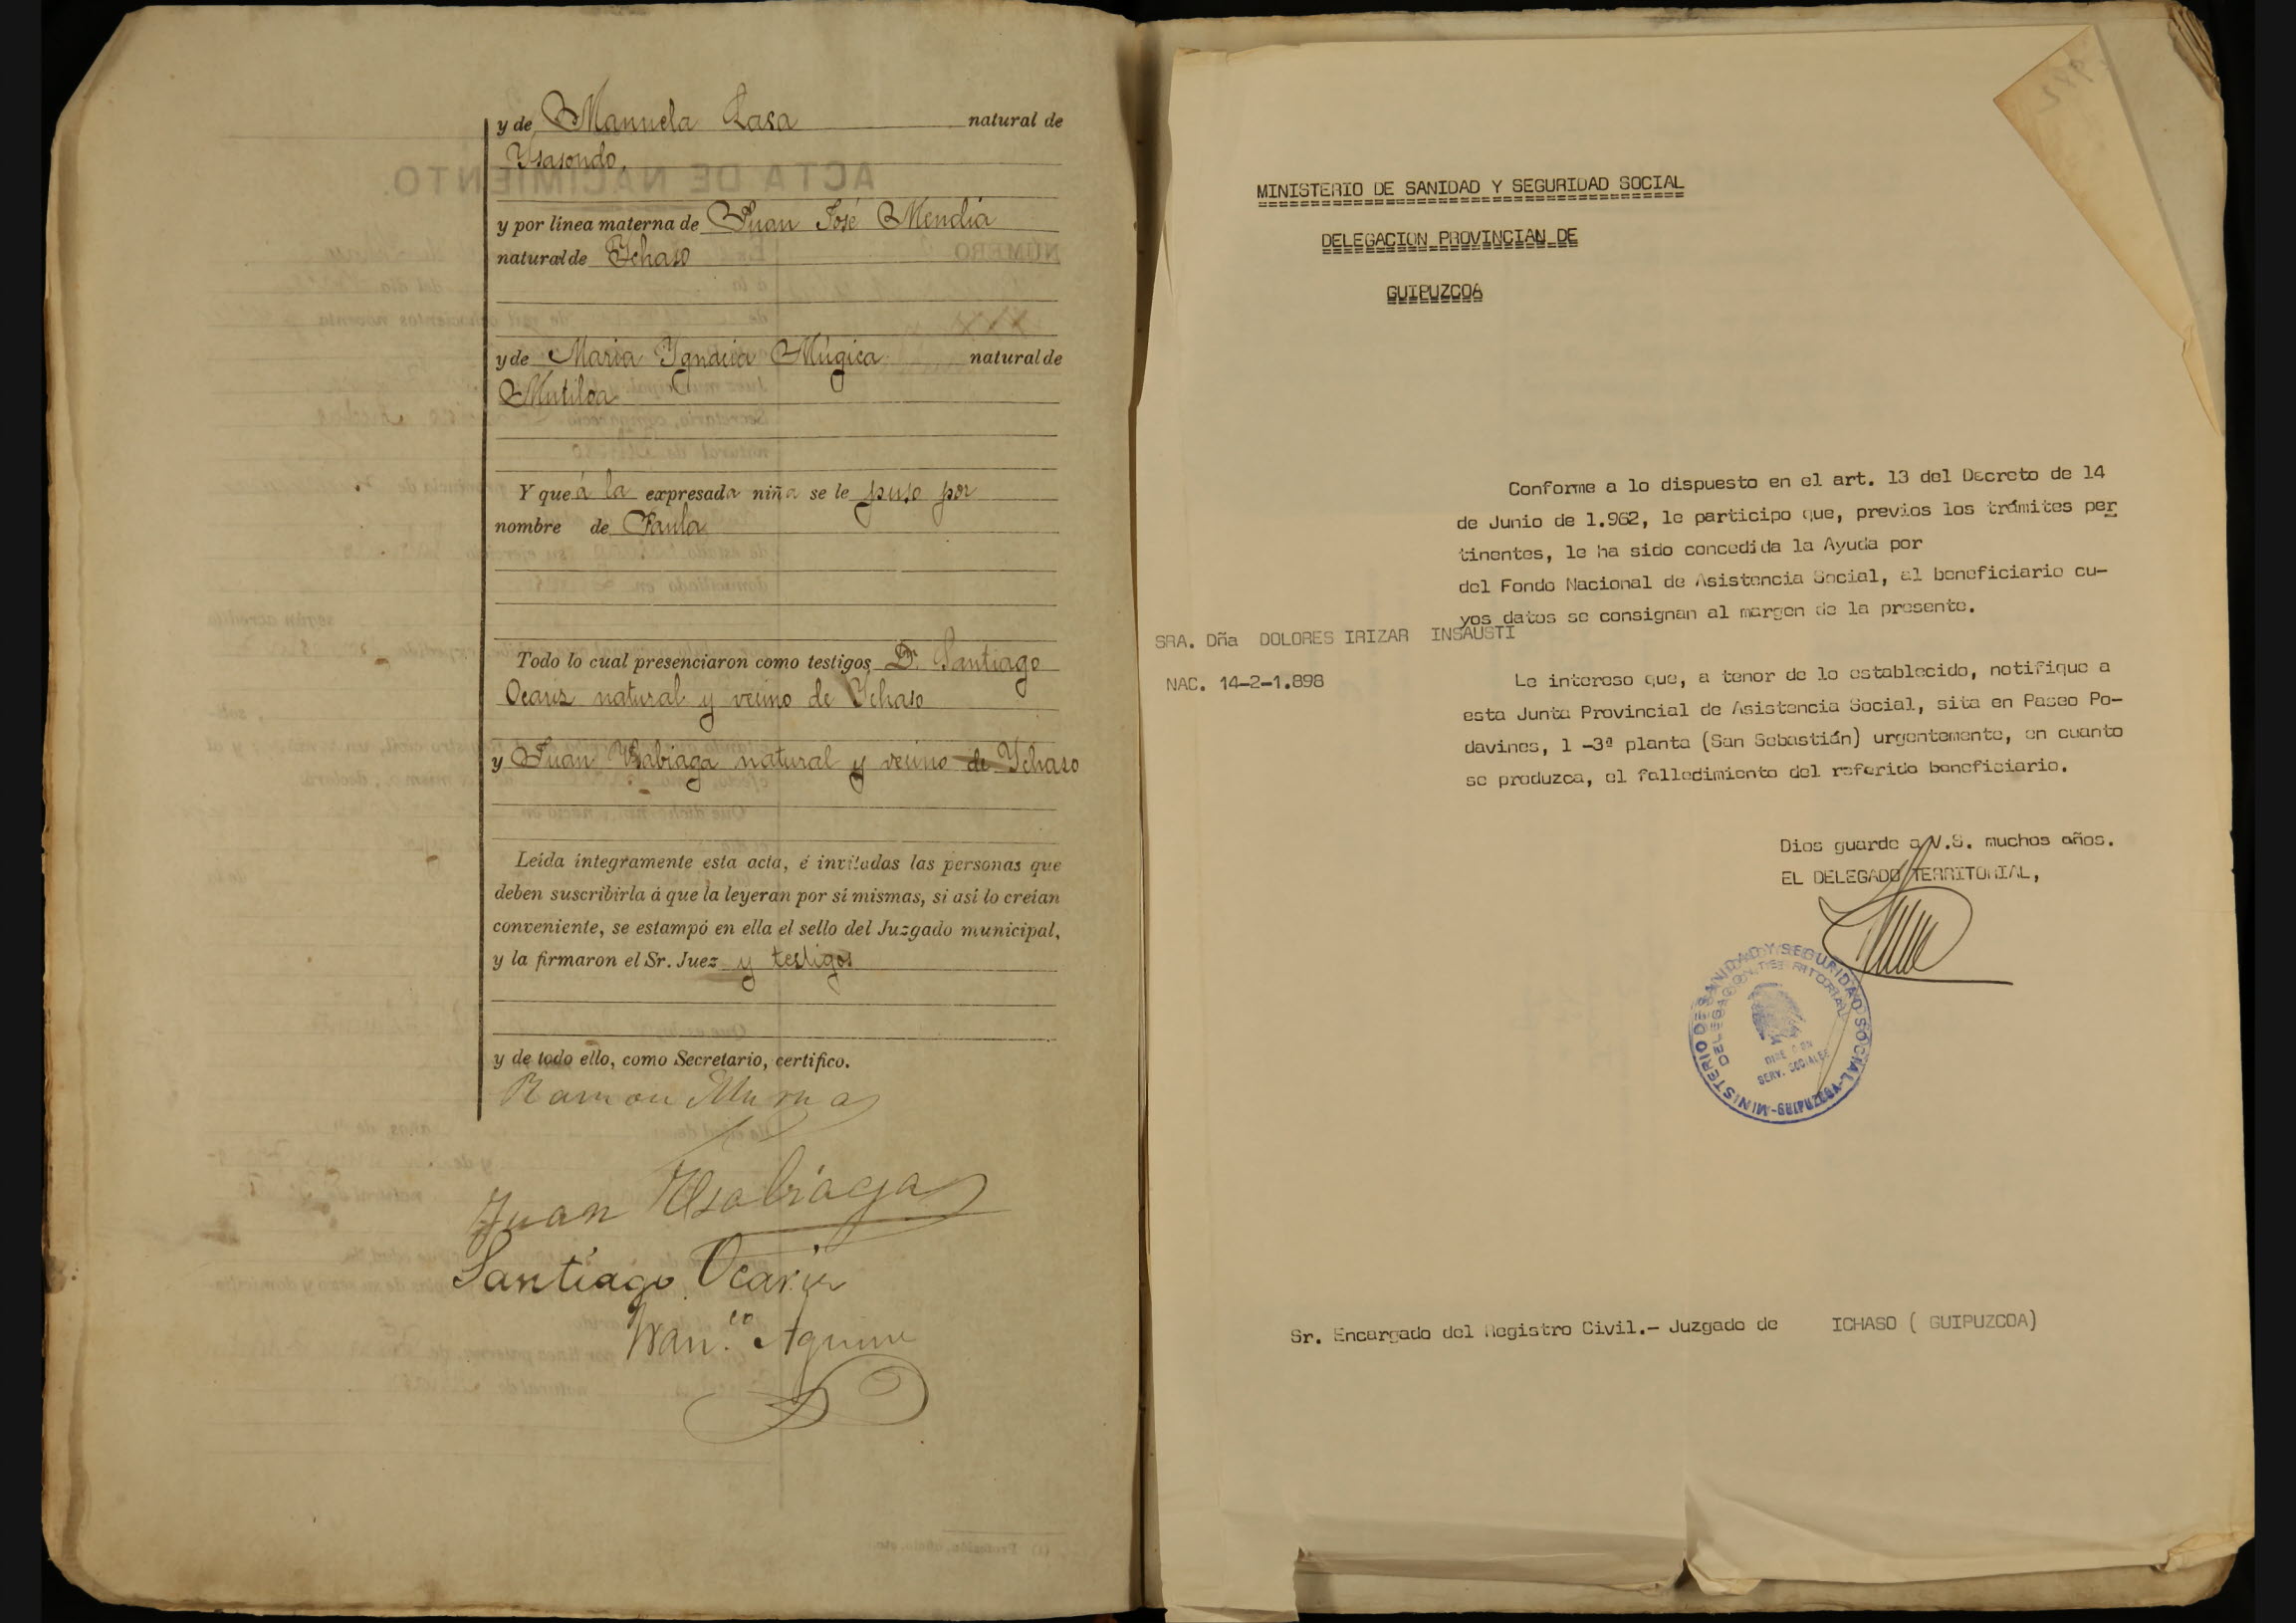 y de Manuela Lasa natural de
Ysasondo.
y por línea materna de Juan José Mendia
natural de Ychaso
y de Maria Ygnacia Múgica natural de
Mutiloa
Y que á la expresada niña se le puso por
nombre de Paula
Todo lo cual presenciaron como testigos D. Santiago
Ocariz natural y vecino de Ychaso
y Juan Usabiaga natural y vecino de Ychaso
Leida integramente esta acta, é invitadas las personas que
deben suscribirla á que la leyeran por sí mismas, si así lo creían
conveniente, se estampó en ella el sello del Juzgado municipal,
y la firmaron el Sr. Juez y testigos
y de todo ello, como Secretario, certifico.
Ramon
Juan Usabiaga
Santiago Ocariz
Fran.co Aguirre
MINISTERIO DE SANIDAD Y SEGURIDAD SOCIAL
DELEGACION PROVINCIAN DE
GUIPUZCOA
Conforme a lo dispuesto en el art. 13 del Decreto de 14
de Junio de 1.962, le participo que, previos los trámites per
tinentes, le ha sido concedida la Ayuda por
del Fondo Nacional de Asistencia Social, al beneficiario cu-
yos datos se consignan al margen de la presente.
SRA. Dña DOLORES IRIZAR INSAUSTI
NAC. 14-2-1.898
Le intereso que, a tenor de lo establecido, notifique a
esta Junta Provincial de Asistencia Social, sita en Paseo Po-
davines, 1 -3ª planta (San Sebastián) urgentemente, en cuanto
se produzca, el falledimiento del referido beneficiario.
Dios guarde a V.S. muchos años.
EL DELEGADO TERRITORIAL,
MINISTERIO DE SANIDAD Y SEGURIDAD SOCIAL
DELEGACION TERRITORIAL
SERV. SOCIALES
Sr. Encargado del Registro Civil.- Juzgado de ICHASO ( GUIPUZCOA)